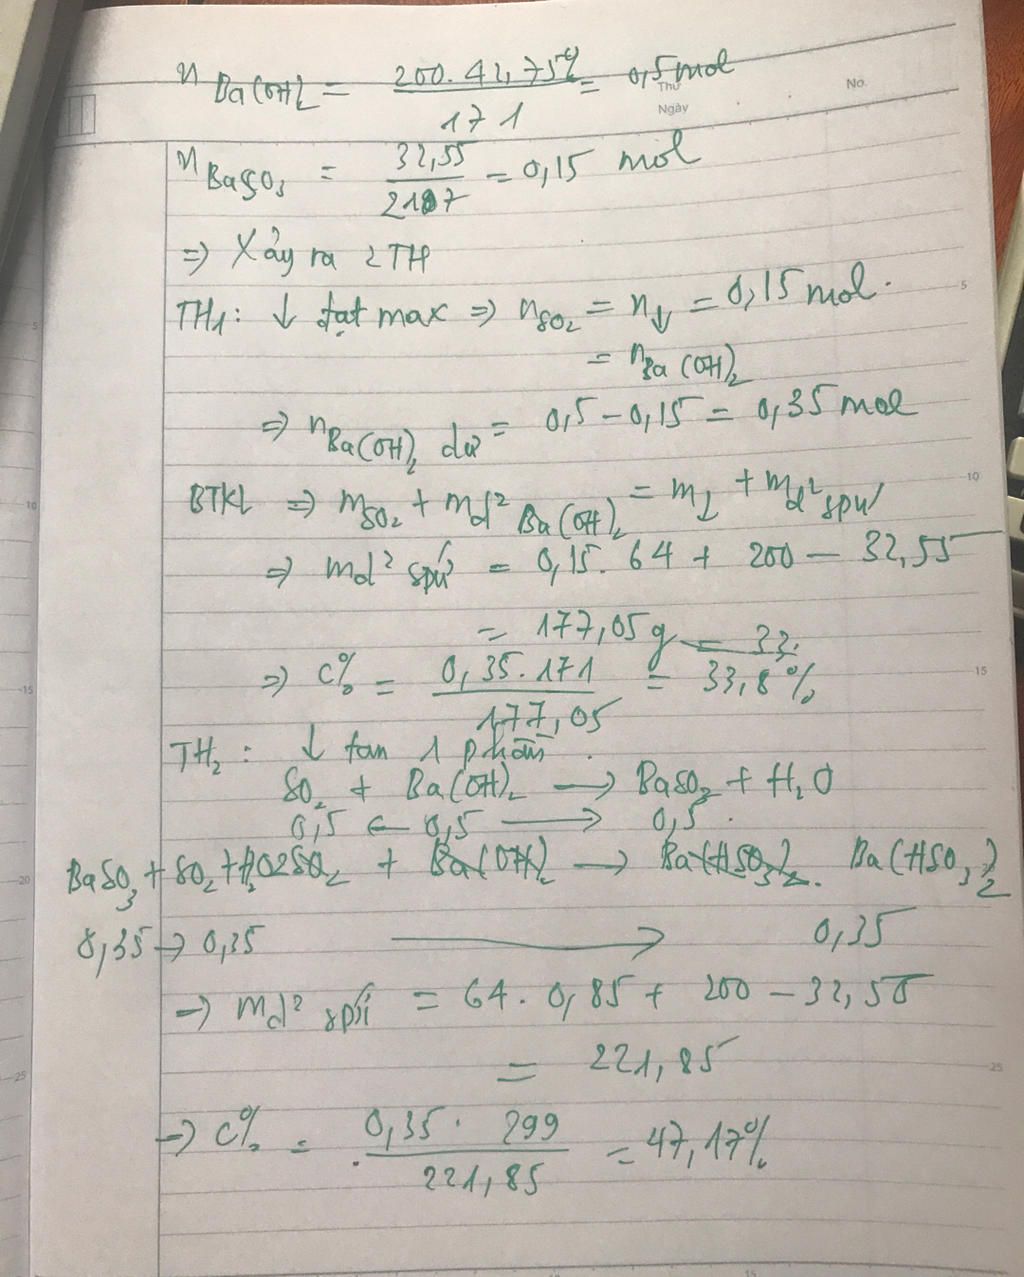 n Ba(OH)2 = 200.42,75% / 171 = 0,5 mol
Thứ
Ngày
No.
n BaSO3 = 32,55 / 217 = 0,15 mol
=> Xảy ra 2 TH
TH1: ↓ đạt max => nSO2 = n↓ = 0,15 mol.
5
= nBa(OH)2
=> nBa(OH)2 dư = 0,5 - 0,15 = 0,35 mol
BTKL => mSO2 + md² Ba(OH)2 = m↓ + md² spư
10
=> md² spứ = 0,15. 64 + 200 - 32,55
= 177,05 g = 33,
=> C% = 0,35.171 / 177,05 = 33,8%
15
TH2: ↓ tan 1 phần.
SO2 + Ba(OH)2 → BaSO3 + H2O
0,5 ← 0,5 → 0,5.
BaSO3 + SO2 + H2O 2SO2 + Ba(OH)2 → Ba(HSO3)2. Ba(HSO3)2
20
0,35 → 0,35 → 0,35
→ md² spứ = 64. 0,85 + 200 - 32,55
= 221,85
25
→ C% = 0,35. 299 / 221,85 = 47,17%